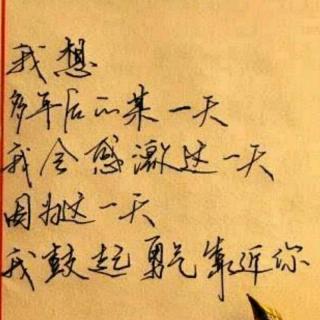 我想
多年后的某一天
我会感激这一天
因为这一天
我鼓起勇气靠近你